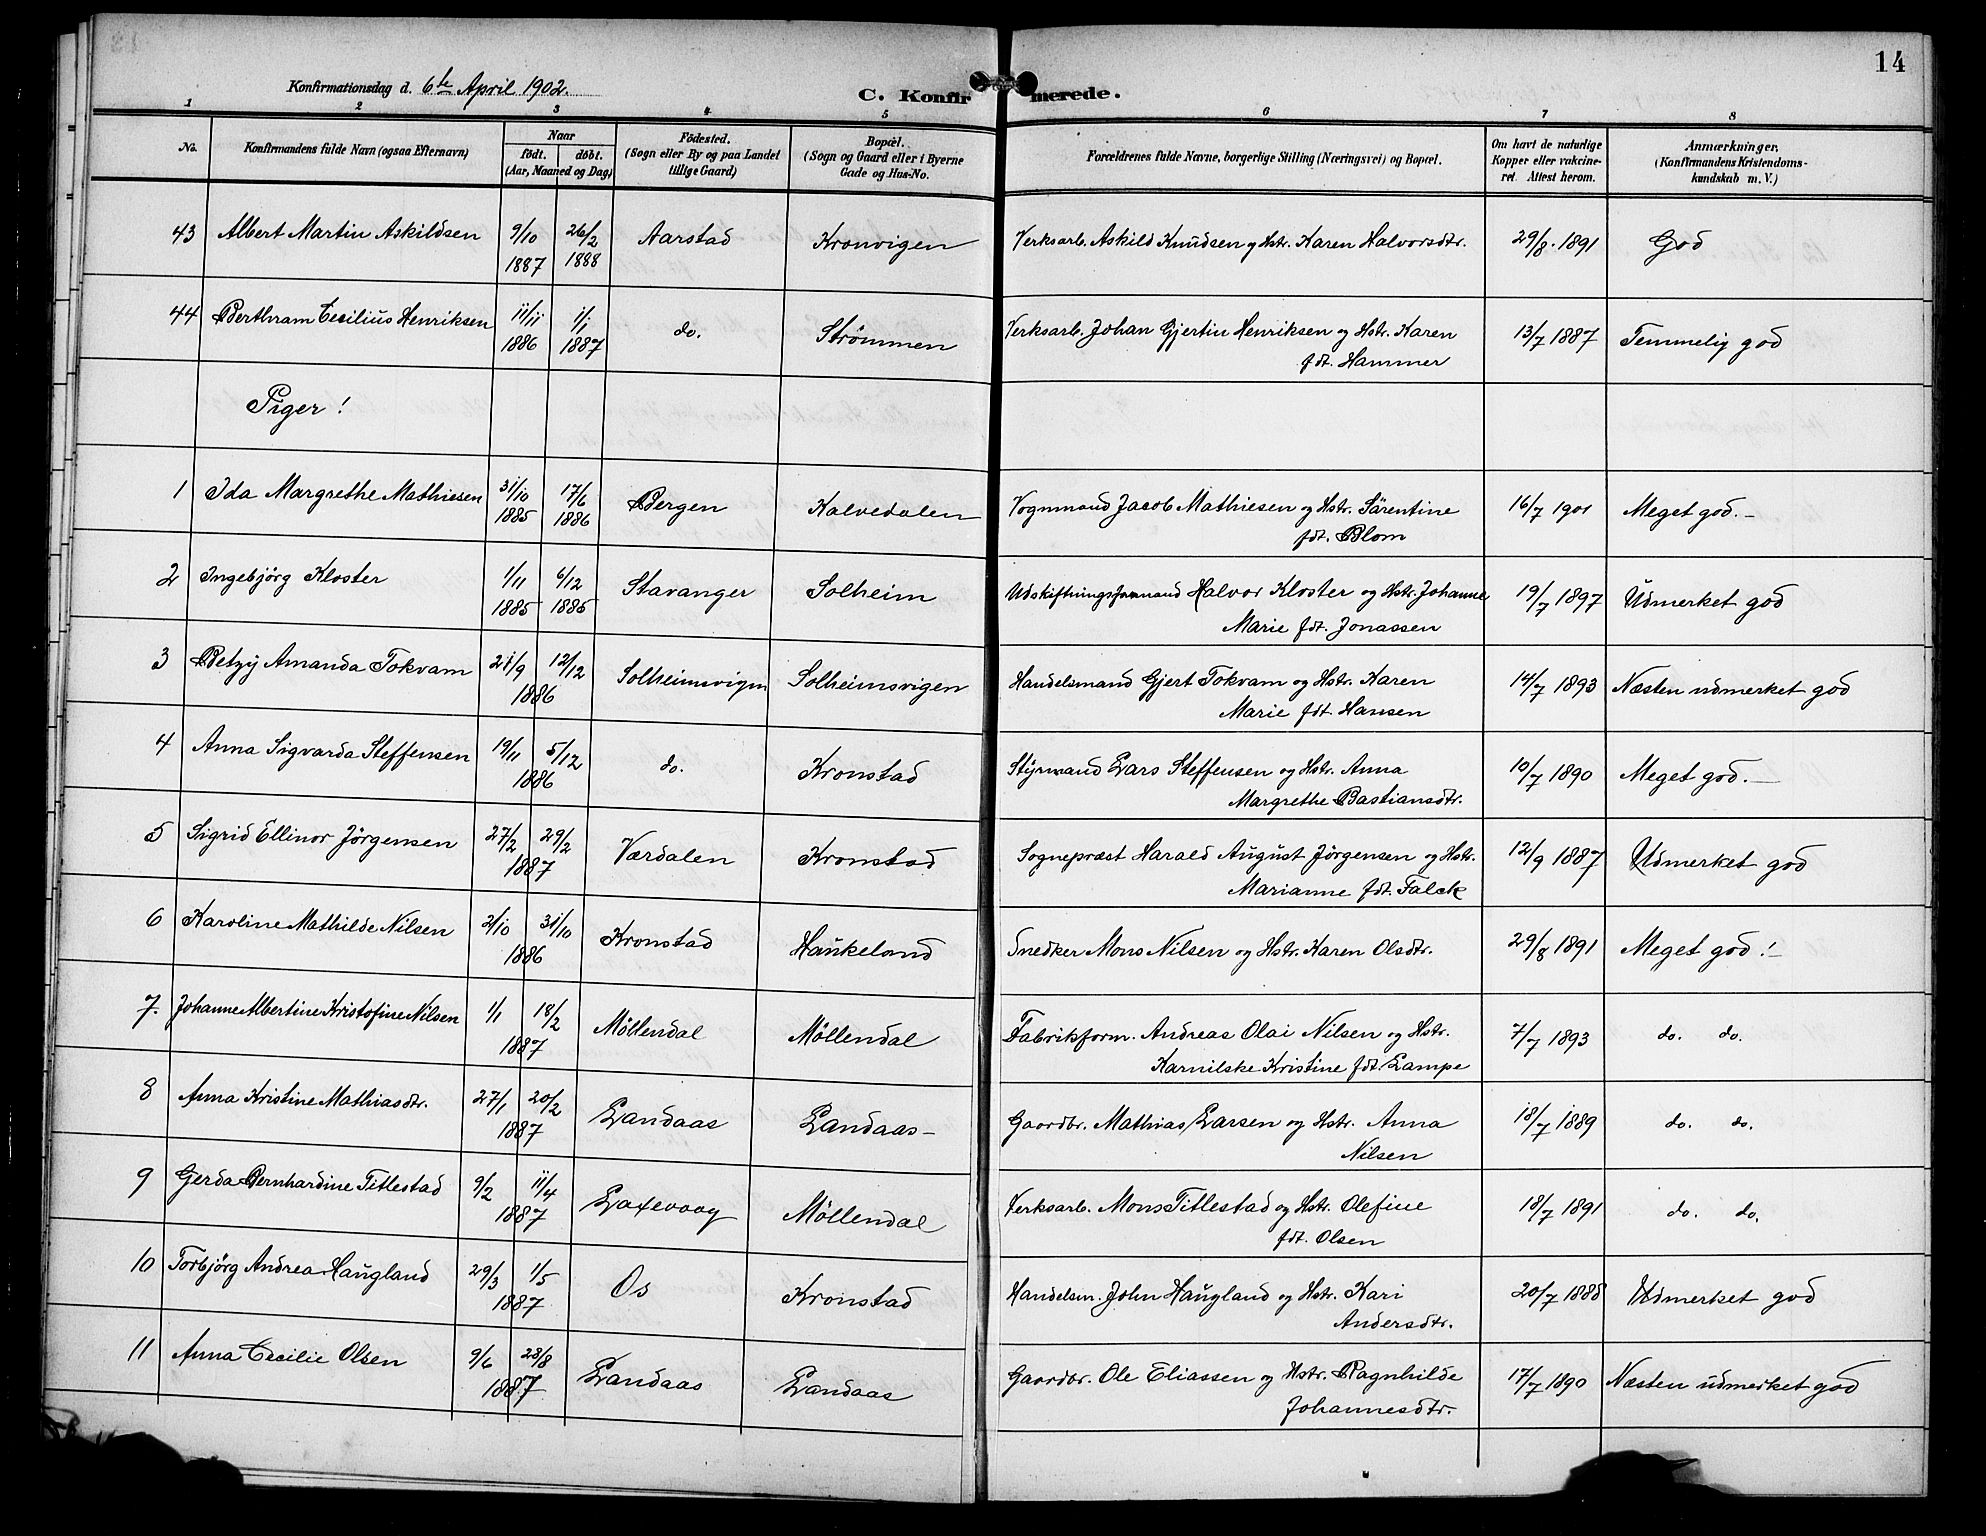 14
Konfirmationsdag d. 6te April 1902.
C. Konfirmerede.
1 2 3 4 5 6 7 8
No. Konfirmandens fulde Navn (ogsaa Efternavn) Naar født. døbt. (Aar, Maaned og Dag) Fødested. (Sogn eller By og paa Landet tillige Gaard) Bopæl. (Sogn og Gaard eller i Byerne Gade og Hus-No. Forældrenes fulde Navne, borgerlige Stilling (Næringsvei) og Bopæl. Om havt de naturlige Kopper eller vakcineret. Attest herom. Anmærkninger. (Konfirmandens Kristendomskundskab m. V.)
43 Albert Martin Askildsen 9/10 1887 26/2 1888 Aarstad Kronvigen Verksarb. Askild Knudsen og Hstr. Karen Halvorsdtr. 29/8. 1891 God
44 Berthram Cecilius Henriksen 11/11 1886 1/1 1887 do. Strømmen Verksarb. Johan Gjertin Henriksen og Hstr. Karen fdt. Hammer 13/7 1887 Temmelig god
Piger!
1 Ida Margrethe Mathiesen 31/10 1885 17/6 1886 Bergen Kalvedalen Vognmand Jacob Mathiesen og Hstr. Särentine fdt. Blom 16/7 1901 Meget god. –
2 Ingebjörg Kloster 1/11 1885 6/12 1885 Stavanger Solheim Udskiftningsformand Halvor Kloster og Hstr. Johanne Marie fdt. Jonassen 19/7 1897 Udmerket god
3 Betzy Amanda Tokvam 21/9 12/12 1886 Solheimsvigen Solheimsvigen Handelsmand Gjert Tokvam og Hstr. Karen Marie fdt. Hansen 14/7 1893 Næsten udmerket god
4 Anna Sigvarda Steffensen 19/11 5/12 1886 do. Kronstad Styrmand Lars Steffensen og Hstr. Anna Margrethe Bastiansdtr. 10/7 1890 Meget god. –
5 Sigrid Ellinor Jörgensen 27/2 29/2 1887 Værdalen Kronstad Sognepræst Harald August Jörgensen og Hstr. Marianne fdt. Falck 12/9 1887 Udmerket god
6 Karoline Mathilde Nilsen 2/10 31/10 1886 Kronstad Haukeland Snedker Mons Nilsen og Hstr. Karen Olsdtr. 29/8 1891 Meget god! –
7. Johanne Albertine Kristofine Nilsen 1/1 18/2 1887 Möllendal Möllendal Fabriksform. Andreas Olai Nilsen og Hstr. Karnilske Kristine fdt. Lampe 7/7 1893 do. do.
8 Anna Kristine Mathiasdtr. 27/1 20/2 1887 Landaas Landaas – Gaardbr. Mathias Larsen og Hstr. Anna Nilsen 18/7 1889 do. do.
9 Gerda Bernhardine Titlestad 9/2 11/4 1887 Laxevaag Möllendal Verksarb. Mons Titlestad og Hstr. Olefine fdt. Olsen 18/7 1891 do. do.
10 Torbjörg Andrea Haugland 29/3 1/5 1887 Os Kronstad Handelsm. John Haugland og Hstr. Kari Andersdtr. 20/7 1888 Udmerket god
11 Anna Cecilie Olsen 9/6 28/8 1887 Landaas Landaas Gaardbr. Ole Eliassen og Hstr. Ragnhilde Johannesdtr. 17/7 1890 Næsten udmerket god